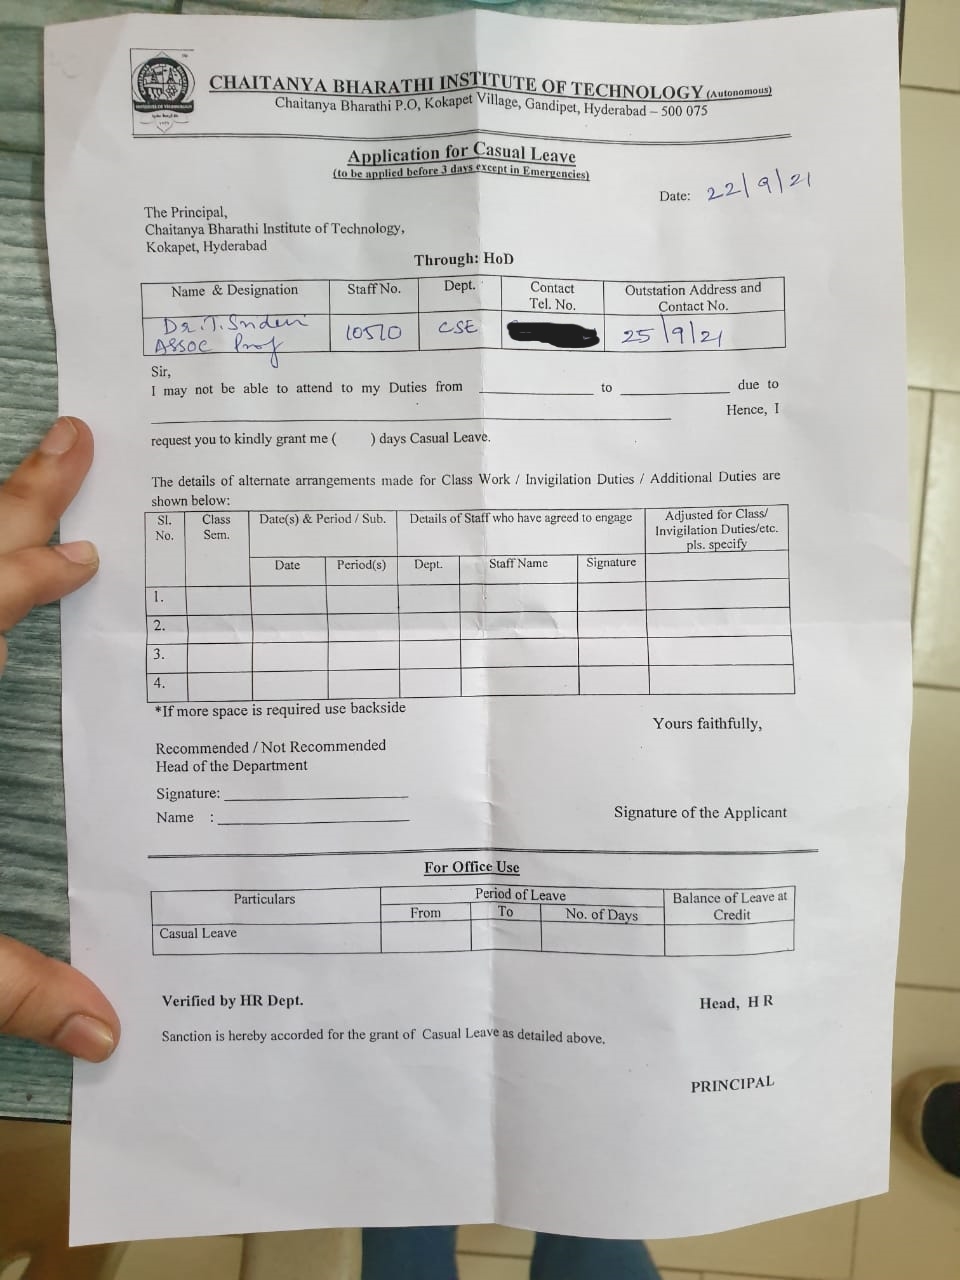 CHAITANYA BHARATHI INSTITUTE OF TECHNOLOGY (Autonomous)
Chaitanya Bharathi P.O, Kokapet Village, Gandipet, Hyderabad – 500 075
Application for Casual Leave
(to be applied before 3 days except in Emergencies)
Date: 22/9/21
The Principal,
Chaitanya Bharathi Institute of Technology,
Kokapet, Hyderabad
Through: HoD
Name & Designation Staff No. Dept. Contact Tel. No. Outstation Address and Contact No.
Dr. T. Sridevi
Assoc Prof 10510 CSE 25/9/21
Sir,
I may not be able to attend to my Duties from ____ to ____ due to
____ Hence, I
request you to kindly grant me ( ) days Casual Leave.
The details of alternate arrangements made for Class Work / Invigilation Duties / Additional Duties are
shown below:
Sl. No. Class Sem. Date(s) & Period / Sub. Details of Staff who have agreed to engage Adjusted for Class/ Invigilation Duties/etc. pls. specify
Date Period(s) Dept. Staff Name Signature
1.
2.
3.
4.
*If more space is required use backside
Yours faithfully,
Recommended / Not Recommended
Head of the Department
Signature: ____
Name : ____
Signature of the Applicant
For Office Use
Particulars Period of Leave Balance of Leave at Credit
From To No. of Days
Casual Leave
Verified by HR Dept. Head, H R
Sanction is hereby accorded for the grant of Casual Leave as detailed above.
PRINCIPAL